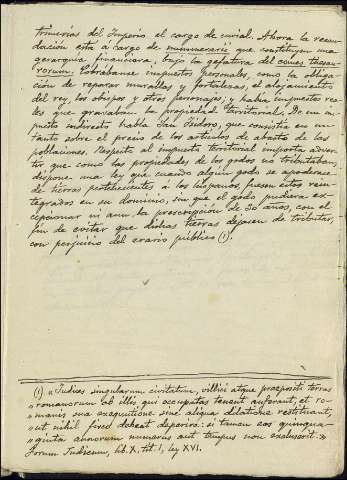 trimerías del Imperio el cargo de curial. Ahora la recau-
dación está a cargo de numerarii que constituyen una
gerarquía financiera, bajo la gefatura del comes thesau-
rorum. Cobrábanse impuestos personales, como la obliga-
ción de reparar murallas y fortalezas, el alojamiento
del rey, los obispos y otros personajes, y había impuestos rea-
les que gravaban la propiedad territorial. De un im-
puesto indirecto habla San Isidoro, que consistía en un
tanto sobre el precio de los artículos de abasto de las
poblaciones. Respecto al impuesto territorial importa adver-
tir que como las propiedades de los godos no tributaban,
dispone una ley que cuando algún godo se apoderase
de tierras pertenecientes á los hispanos fuesen éstos rein-
tegrados en su dominio, sin que el godo pudiera ex-
cepcionar ni aun la prescripción de 30 años, con el
fin de evitar que dichas tierras dejasen de tributar,
con perjuicio del erario público (1).
(1) "Iudices singularum civitatum, villici atque praepositi terras
"romanorum ab illis qui occupatas tenent auferant, et ro-
"manis sua exequutione sine aliqua dilatione restituant,
"ut nihil fisco debeat deperire: si tamen eos quinqua-
"ginta annorum numerus aut tempus non excluserit."
Forum Iudicum, lib. X, tít. I, ley XVI.